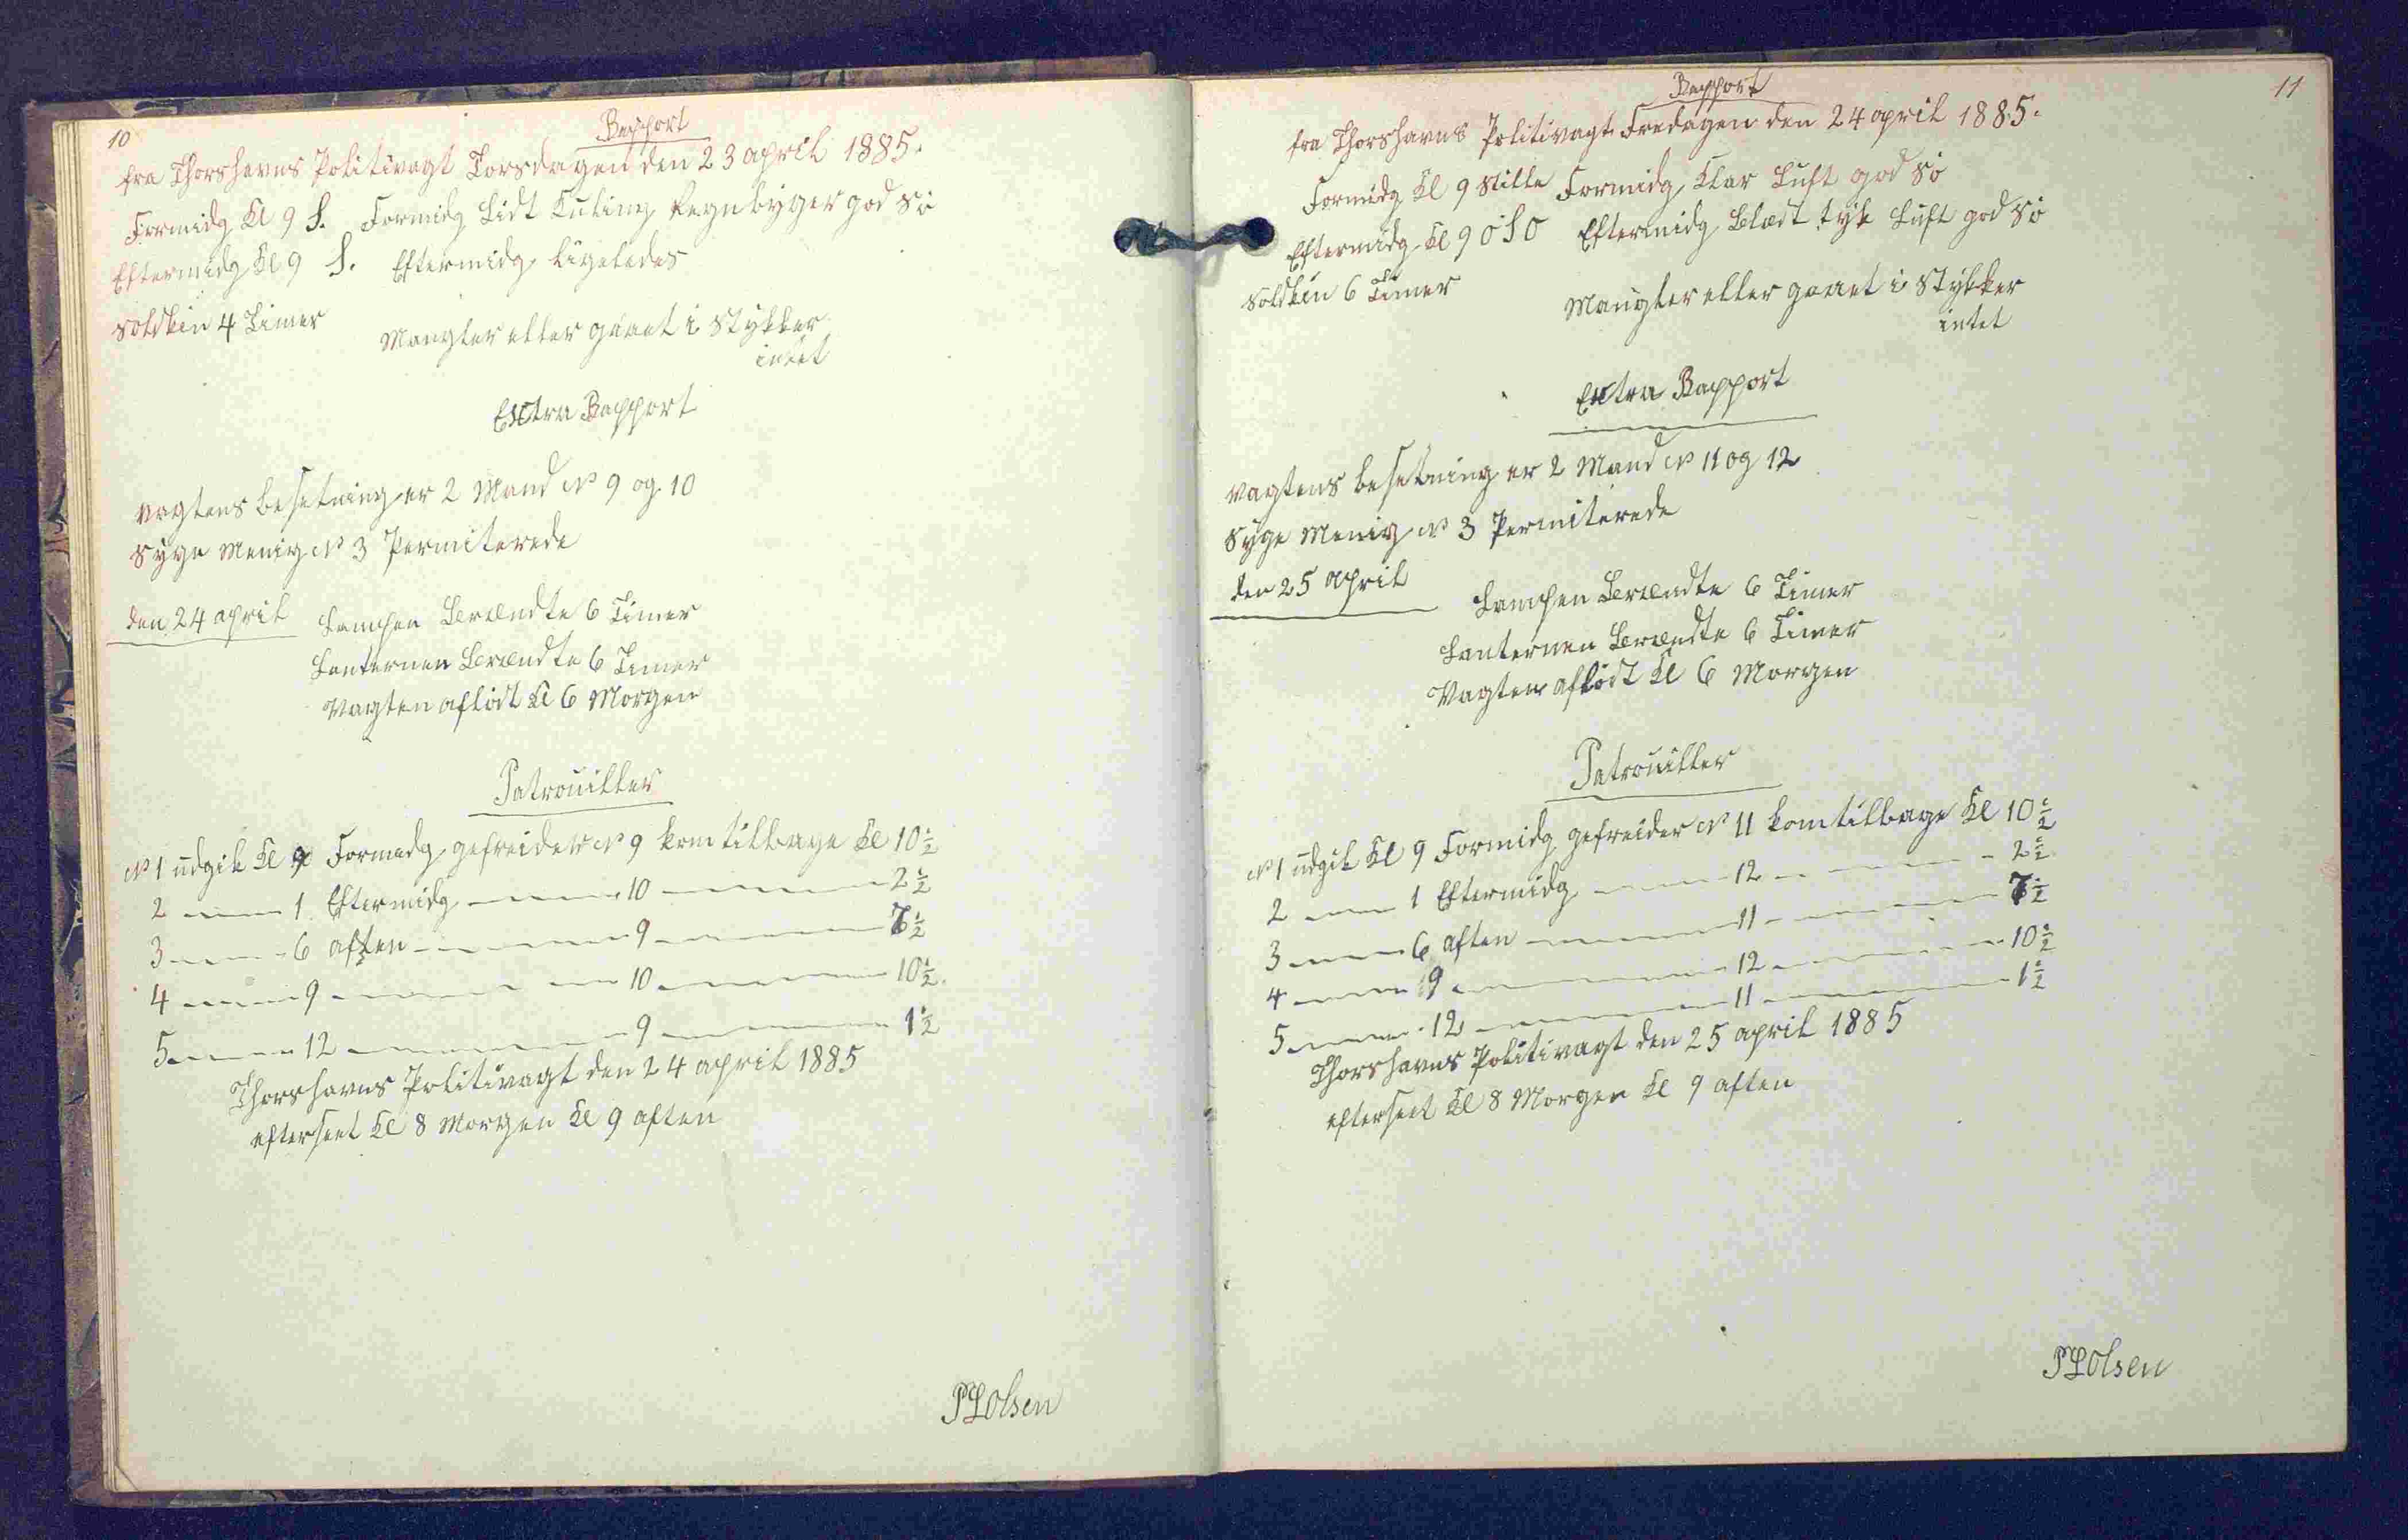 10
Rapport
fra Thorshavns Politivagt Torsdagen den 23 april 1885.
Formidg Kl 9 S. Formidg Lidt Kuling Regnbyger god Sö
Eftermidg Kl 9 S. Eftermidg ligeledes
Solskin 4 Timer
Mangler eller gaaet i Stykker
intet
Extra Rapport
Vagtens besetning er 2 Mand No 9 og 10
Syge Menig No 3 Permiterede
den 24 april Lampen Brændte 6 Timer
Lanternen Brændte 6 Timer
Vagten aflöst Kl 6 Morgen
Patrouiller
No 1 udgik Kl 9 Formidg gefreider No 9 kom tilbage Kl 10 1/2
2 — 1 Eftermidg — 10 — 2 1/2
3 — 6 aften — 9 — 7 1/2
4 — 9 — 10 — 10 1/2
5 — 12 — 9 — 1 1/2
Thorshavns Politivagt den 24 april 1885
efterseet Kl 8 Morgen Kl 9 aften
PLOlsen
11
Rapport
fra Thorshavns Politivagt Fredagen den 24 april 1885.
Formidg Kl 9 Stille Formidg Klar Luft god Sö
Eftermidg Kl 9 OSO Eftermidg Blæst tyk Luft god Sö
Solskin 6 Timer
Mangler eller gaaet i Stykker
intet
Extra Rapport
Vagtens besetning er 2 Mand No 11 og 12
Syge Menig No 3 Permiterede
den 25 april
Lampen Brændte 6 Timer
Lanternen Brændte 6 Timer
Vagten aflöst Kl 6 Morgen
Patrouiller
No 1 udgik Kl 9 Formidg gefreider No 11 kom tilbage Kl 10 1/2
2 — 1 Eftermidg — 12 — 2 1/2
3 — 6 aften — 11 — 7 1/2
4 — 9 — 12 — 10 1/2
5 — 12 — 11 — 1 1/2
Thorshavns Politivagt den 25 april 1885
efterseet Kl 8 Morgen Kl 9 aften
PLOlsen